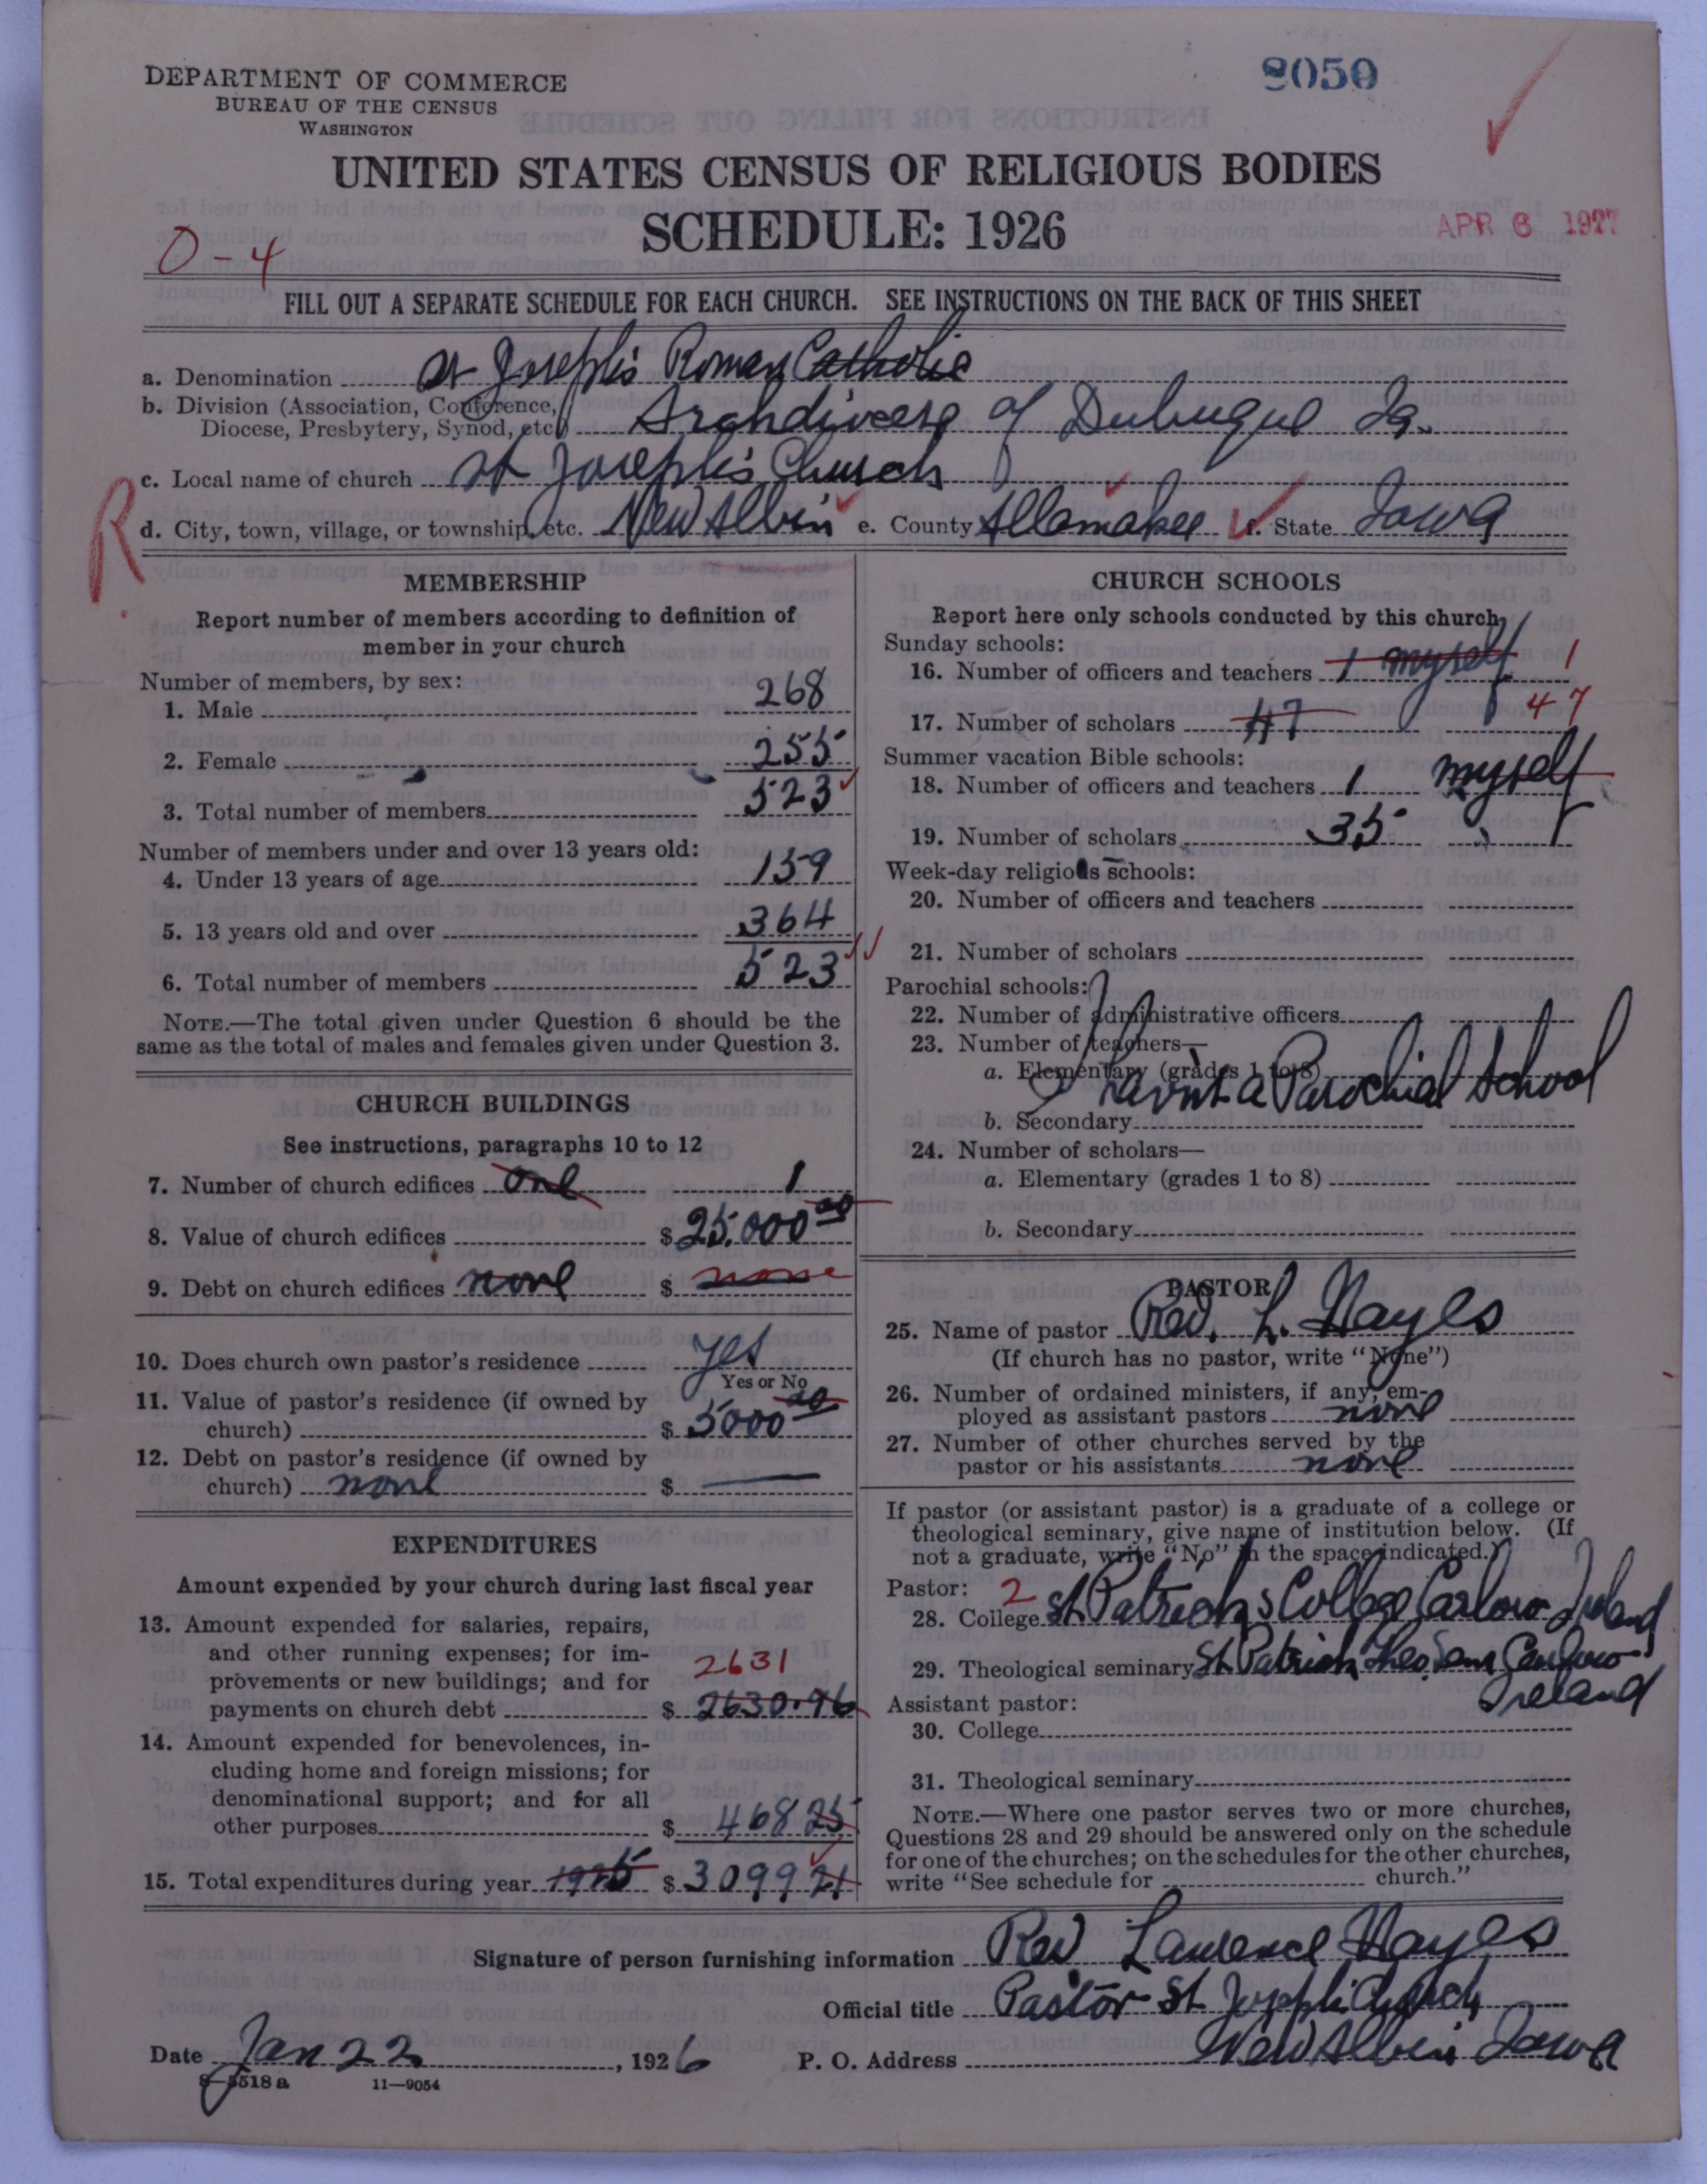 DEPARTMENT OF COMMERCE
BUREAU OF THE CENSUS
WASHINGTON
8050
UNITED STATES CENSUS OF RELIGIOUS BODIES
SCHEDULE: 1926
APR 6 1927
0-4
FILL OUT A SEPARATE SCHEDULE FOR EACH CHURCH. SEE INSTRUCTIONS ON THE BACK OF THIS SHEET
a. Denomination St Joseph's Roman Catholic
b. Division (Association, Conference, Diocese, Presbytery, Synod, etc.) Archdiocese of Dubuque Ia.
c. Local name of church St Joseph's Church
R
d. City, town, village, or township, etc. New Albin e. County Allamakee f. State Iowa
MEMBERSHIP
Report number of members according to definition of
member in your church
Number of members, by sex:
1. Male 268
2. Female 255
3. Total number of members 523
Number of members under and over 13 years old:
4. Under 13 years of age 159
5. 13 years old and over 364
6. Total number of members 523
NOTE.—The total given under Question 6 should be the
same as the total of males and females given under Question 3.
CHURCH BUILDINGS
See instructions, paragraphs 10 to 12
7. Number of church edifices one 1
8. Value of church edifices $ 25.000 00
9. Debt on church edifices none $ none
10. Does church own pastor's residence yes
Yes or No
11. Value of pastor's residence (if owned by
church) $ 5000 00
12. Debt on pastor's residence (if owned by
church) none $ —
EXPENDITURES
Amount expended by your church during last fiscal year
13. Amount expended for salaries, repairs,
and other running expenses; for im-
provements or new buildings; and for 2631
payments on church debt $ 2630.96
14. Amount expended for benevolences, in-
cluding home and foreign missions; for
denominational support; and for all
other purposes $ 468 25
15. Total expenditures during year 1925 $ 3099 21
CHURCH SCHOOLS
Report here only schools conducted by this church
Sunday schools:
16. Number of officers and teachers 1 myself 1
17. Number of scholars 47 47
Summer vacation Bible schools:
18. Number of officers and teachers 1 myself
19. Number of scholars 35
Week-day religious schools:
20. Number of officers and teachers
21. Number of scholars
Parochial schools:
22. Number of administrative officers
23. Number of teachers—
a. Elementary (grades 1 to 8)
I havint a Parochial School
b. Secondary
24. Number of scholars—
a. Elementary (grades 1 to 8)
b. Secondary
PASTOR
25. Name of pastor Rev. L. Hayes
(If church has no pastor, write "None")
26. Number of ordained ministers, if any, em-
ployed as assistant pastors none
27. Number of other churches served by the
pastor or his assistants none
If pastor (or assistant pastor) is a graduate of a college or
theological seminary, give name of institution below. (If
not a graduate, write "No" in the space indicated.)
Pastor: 2
28. College St Patrick's College Carlow Ireland
29. Theological seminary St. Patrick Theo Sem Carlow
Ireland
Assistant pastor:
30. College
31. Theological seminary
NOTE.—Where one pastor serves two or more churches,
Questions 28 and 29 should be answered only on the schedule
for one of the churches; on the schedules for the other churches,
write "See schedule for church."
Signature of person furnishing information Rev Laurence Hayes
Official title Pastor St Joseph's Church
Date Jan 22, 1926 P. O. Address New Albin Iowa
8—5518 a 11—9054